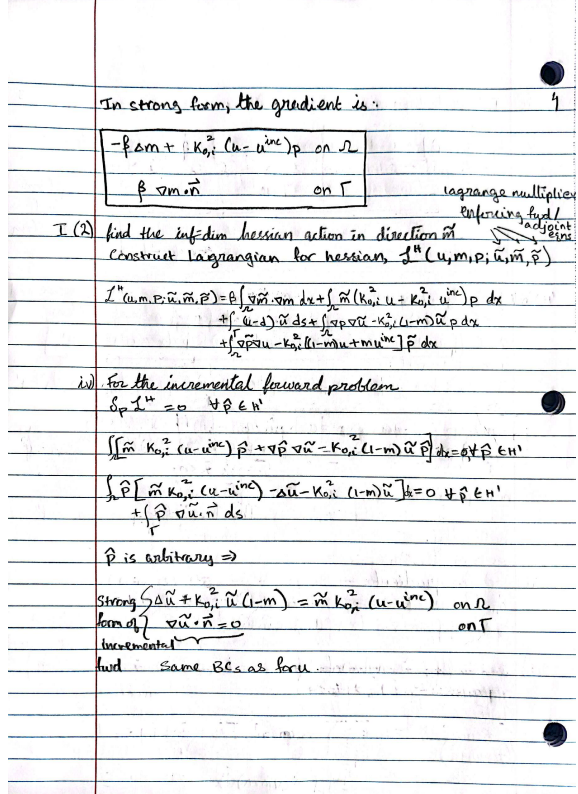 4
In strong form, the gradient is:
-β Δm + K₀,ᵢ² (u - uⁱⁿᶜ)p on Ω
β ∇m·n⃗ on Γ
lagrange multiplier
enforcing fwd/
adjoint
eqns
I (2) find the inf-dim hessian action in direction m̃
Construct Lagrangian for hessian, ℒᴴ(u,m,p; ũ,m̃,p̃)
ℒᴴ(u,m,p; ũ,m̃,p̃) = β∫_Ω ∇m̃·∇m dx + ∫_Ω m̃(K₀,ᵢ² u - K₀,ᵢ² uⁱⁿᶜ)p dx
+ ∫_Γ (u-d)·ũ ds + ∫_Ω ∇p∇ũ - K₀,ᵢ² (1-m)ũ p dx
+ ∫_Ω ∇p̃∇u - K₀,ᵢ² [(1-m)u + muⁱⁿᶜ] p̃ dx
iv) For the incremental forward problem
δₚ ℒᴴ = 0 ∀ p̂ ∈ H¹
∫_Ω [m̃ K₀,ᵢ² (u-uⁱⁿᶜ) p̂ + ∇p̂ ∇ũ - K₀,ᵢ² (1-m) ũ p̂] dx = 0, ∀ p̂ ∈ H¹
∫_Ω p̂ [m̃ K₀,ᵢ² (u-uⁱⁿᶜ) - Δũ - K₀,ᵢ² (1-m)ũ] dx = 0 ∀ p̂ ∈ H¹
+ ∫_Γ p̂ ∇ũ·n⃗ ds
p̂ is arbitrary ⇒
Strong { Δũ + K₀,ᵢ² ũ (1-m) = m̃ K₀,ᵢ² (u-uⁱⁿᶜ) on Ω
form of { ∇ũ·n⃗ = 0 on Γ
incremental
fwd Same BCs as for u.